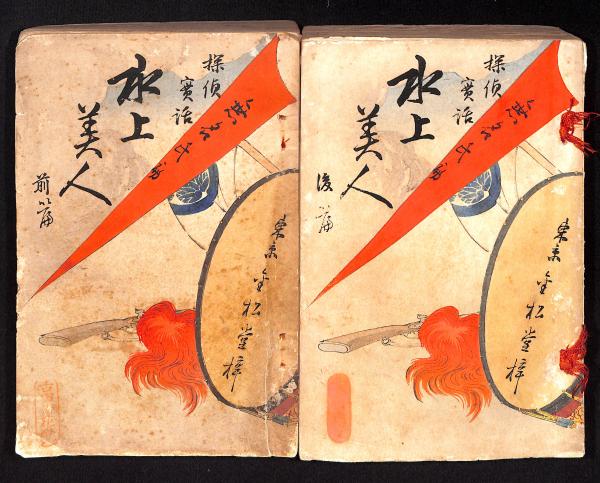 探偵
實話
水上
美人
前篇
無名氏
東京 金松堂梓
探偵
實話
水上
美人
後篇
無名氏
東京 金松堂梓